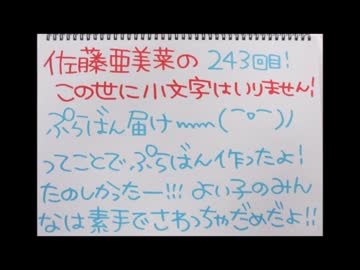 佐藤亜美菜の 243回目!
この世に小文字はいりません!
ぷらばん届け〜〜〜(⌒o⌒)ノ
ってことでぷらばん作ったよ!
たのしかったー!!! よい子のみん
なは素手でさわっちゃだめだよ!!